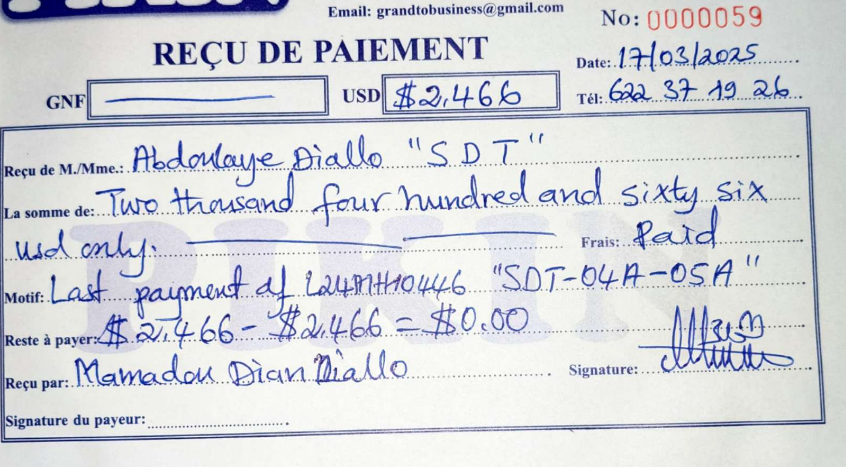 Email: grandtobusiness@gmail.com
No: 0000059
REÇU DE PAIEMENT
Date: 17/03/2025
GNF
USD $2,466
Tél: 622 37 19 26
Reçu de M./Mme.: Abdoulaye Diallo "SDT"
La somme de: Two thousand four hundred and sixty six
usd only.
Frais: Paid
Motif: Last payment of L24MH10446 "SDT-04A-05A"
Reste à payer: $2,466 - $2,466 = $0.00
Reçu par: Mamadou Dian Diallo
Signature:
Signature du payeur:
PIKIN